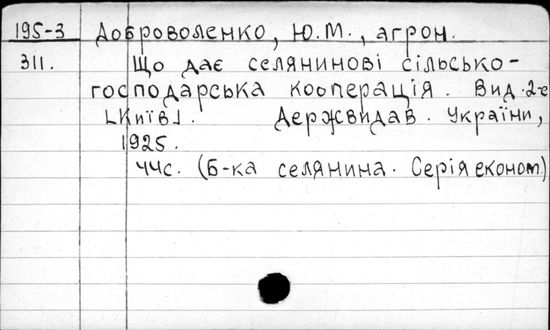 195-3 Доброволенко, Ю.М., агрон.
311. Що дає селянинові сільсько-
господарська кооперація. Вид. 2-е
[Київ]. Держвидав. України,
1925.
44с. (Б-ка селянина. Серія економ.)